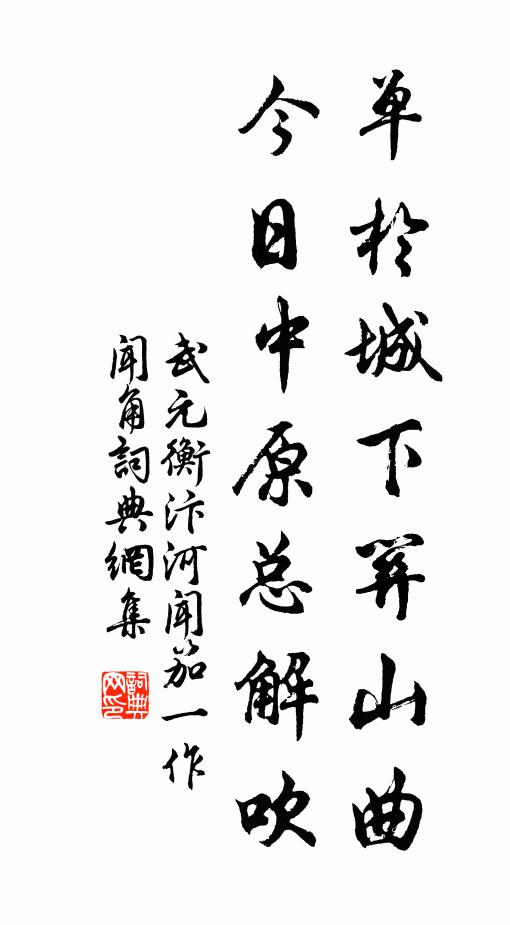 单於城下关山曲
今日中原总解吹
武元衡汴河闻笳一作
闻角詞典網集
詞典网印